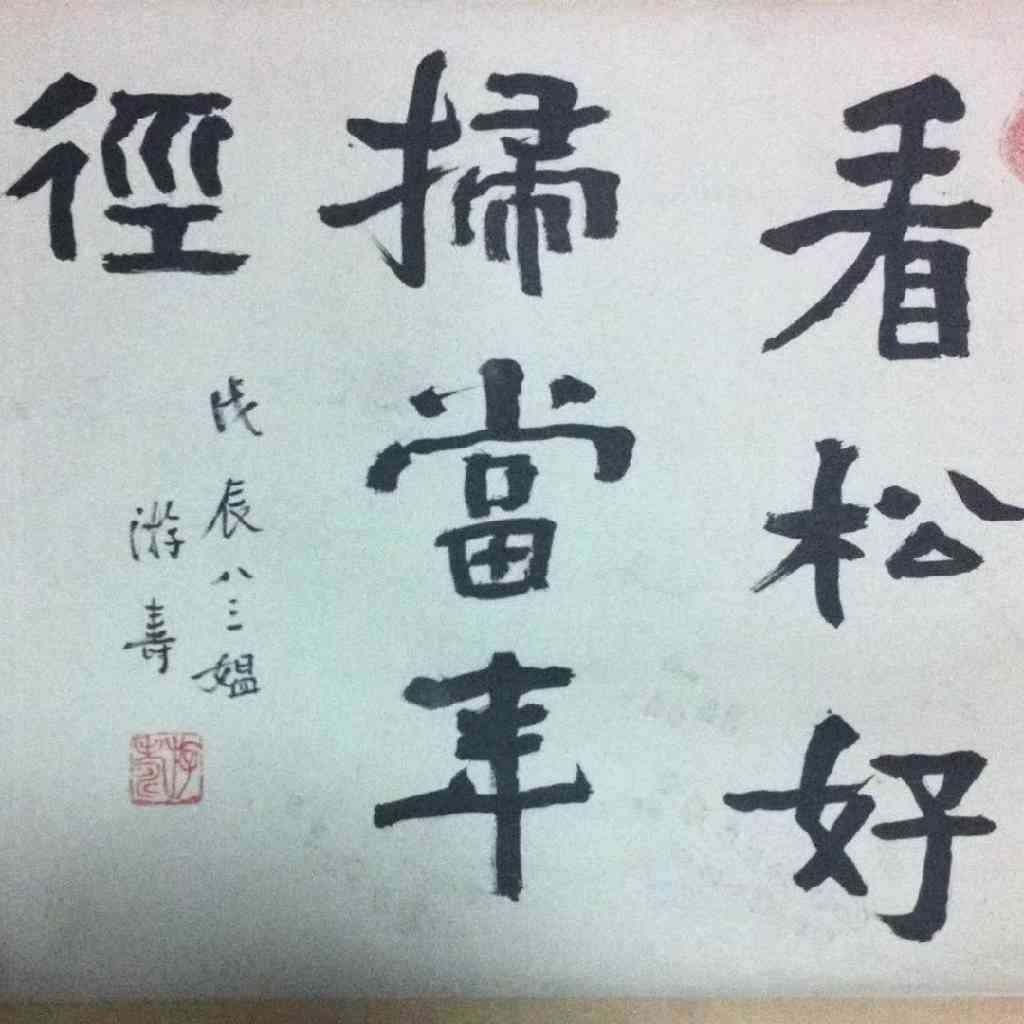 看松好
掃當年
徑
戊辰八三媪
游壽